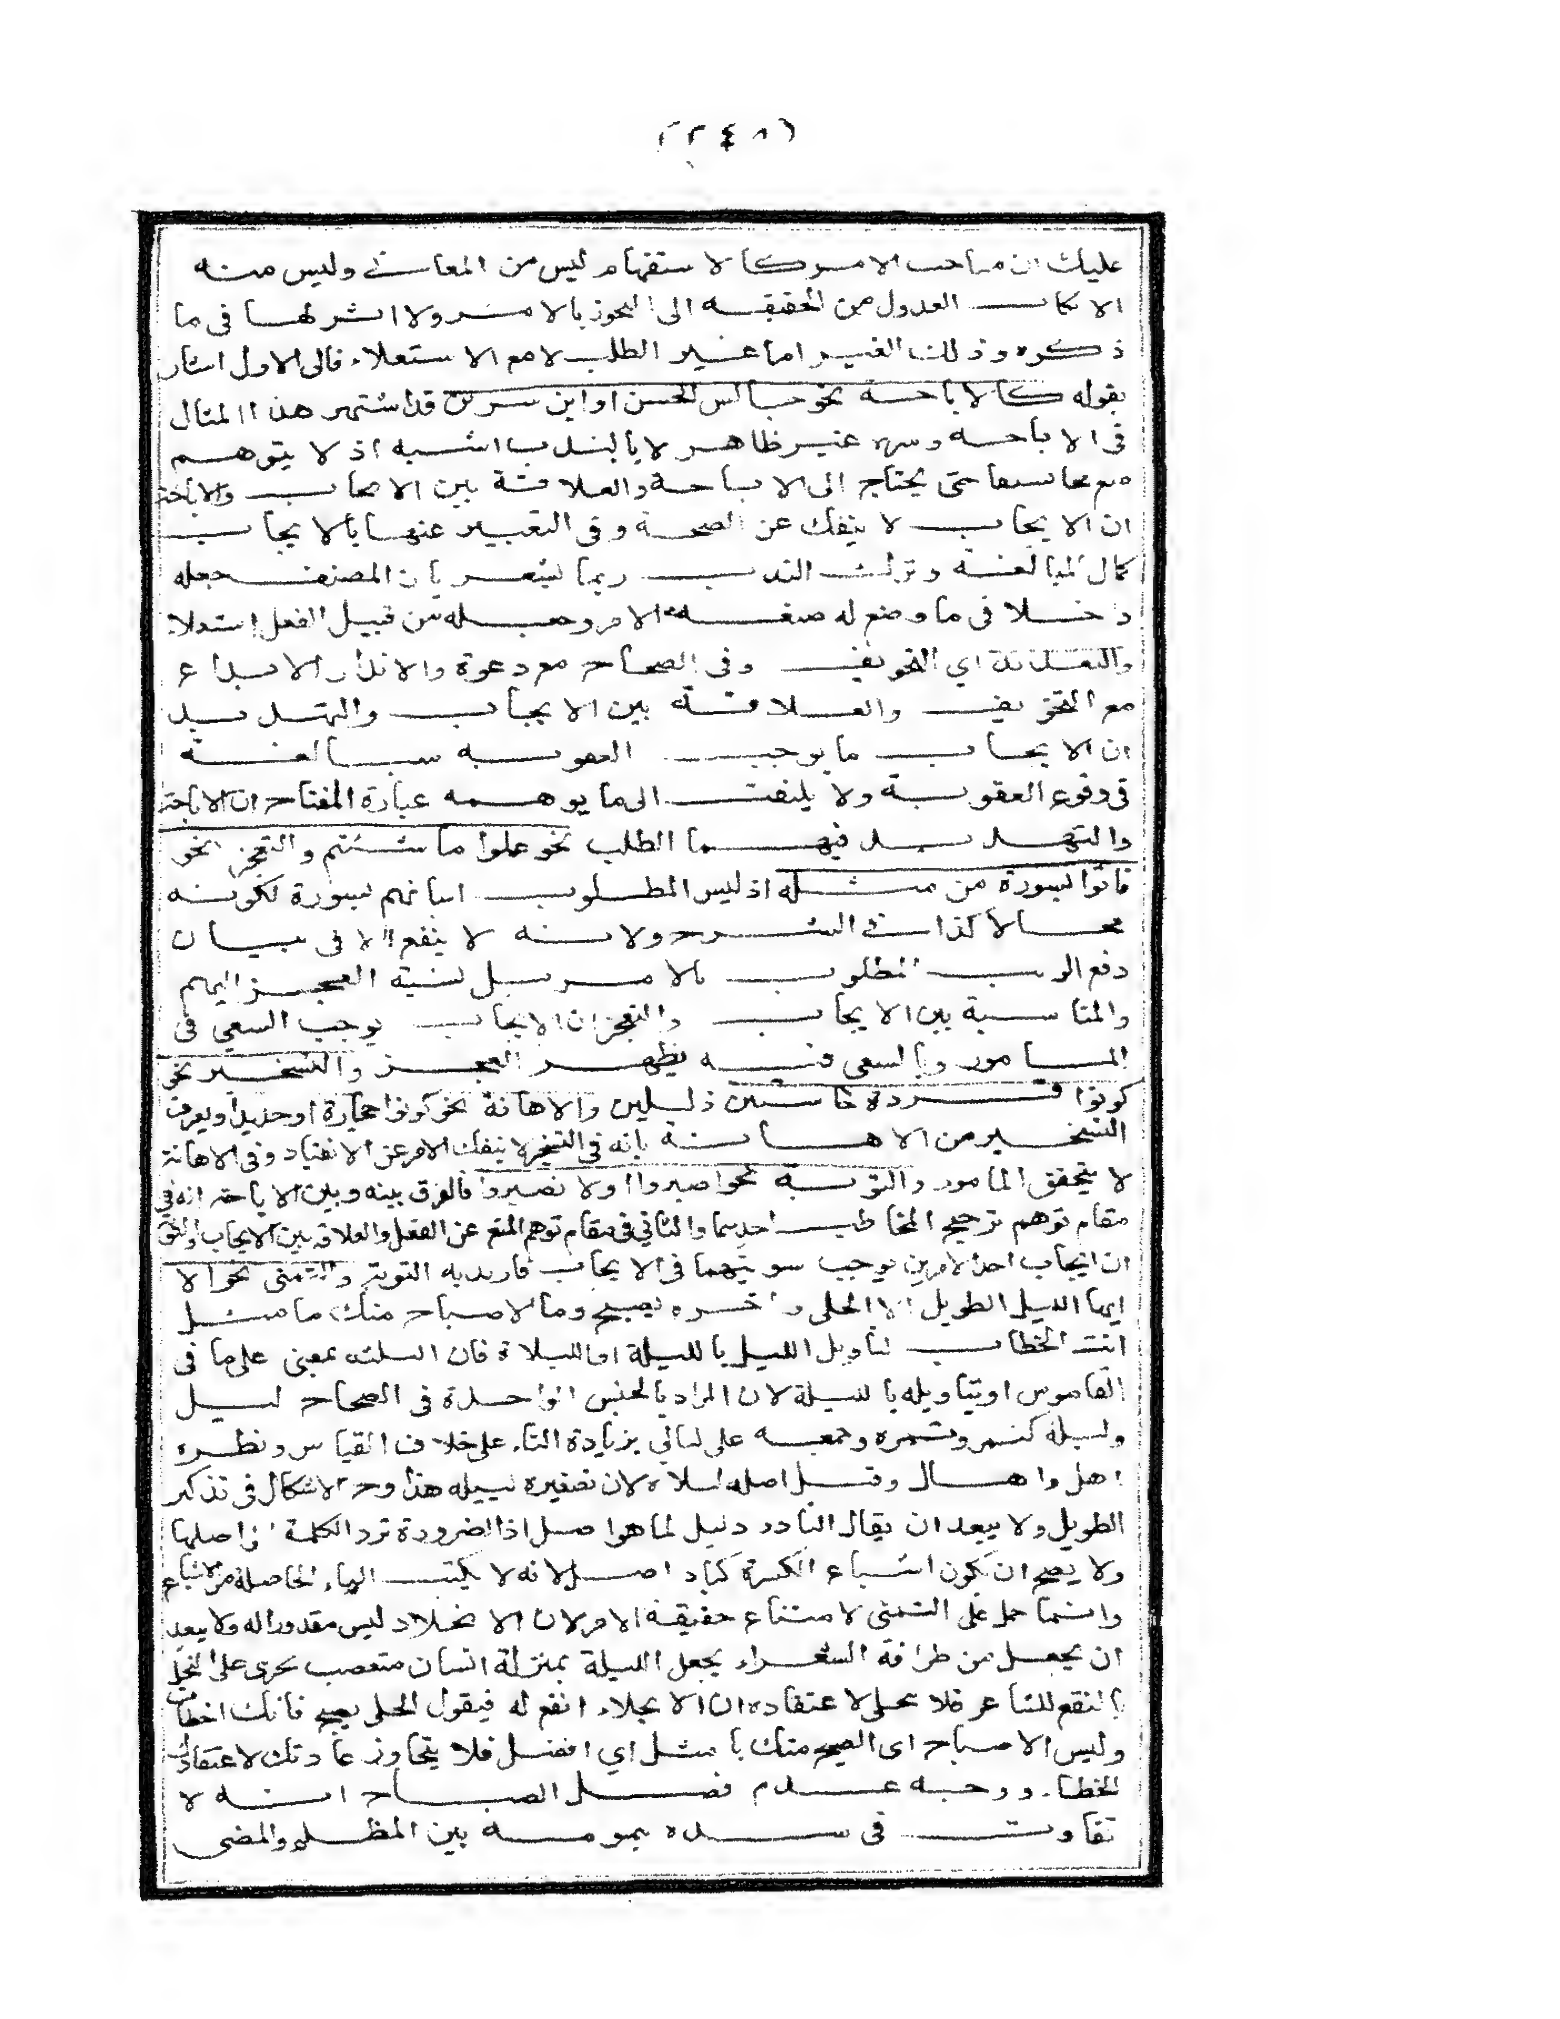 (٢٤٨)
عليك ان مباحث الامر كالاستفهام ليس من المعاني وليس منه
الا نكات العدول من الحقيقه الى التجوز بالامر ولا اشر لها فى ما
ذكره وذلك الغير اما غير الطلب لا مع الاستعلاء فالى الاول اشار
بقوله كالاباحة نحو جالس الحسن او ابن سرين قد اشتهر هذا المثال
فى الاباحه وسره غير ظاهر لا بالندب اشبه اذ لا يتوهم
حتى يحتاج الى الاباحة والعلاقة بين الايجاب والاباحة
ان الايجاب لا ينفك عن الصحة وفى التعبير عنها بالايجاب
كمال المبالغة وترك الندب ربما يشعر بان المصنف جعله
داخلا فى ما وضع له صيغة الامر وجعله من قبيل الفعل استدلا
والتهديد اي التخويف وفى الصحاح مع دعوة والانذار الابداع
مع التخويف والعلاقة بين الايجاب والتهديد
ان الايجاب ما يوجب العقوبه مبالغة
فى وقوع العقوبة ولا يلتفت الى ما يوهمه عبارة المفتاح ان الاباحة
والتهديد فيهما الطلب نحو اعملوا ما شئتم والتعجيز نحو
فأتوا بسورة من مثله اذ ليس المطلوب اتيانهم بسورة لكونه
محالا كذا فى الشرح ولانه لا ينفع الا فى بيان
دفع الريب المطلوب بالامر بل نسبة العجز اليهم
والمناسبة بين الايجاب والتعجيز ان الايجاب يوجب السعي فى
المامور وبالسعى فيه يظهر العجز والتسخير نحو
كونوا قردة خاسئين ذليلين والاهانة نحو كونوا حجارة او حديدا ويعرف
التسخير من الاهانة بانه فى التسخير لا ينفك الامر عن الانقياد وفى الاهانة
لا يتحقق المامور والتسوية نحو اصبروا اولا تصبروا فالفرق بينه وبين الاباحة انه في
مقام توهم ترجيح المخاطب احدهما والثاني فى مقام توهم المنع عن الفعل والعلاقة بين الايجاب والتسوية
ان ايجاب احد الامرين يوجب سويتهما فى الايجاب فاريد به التسوية والتمنى نحو الا
ايها الليل الطويل الا انجلى واخره بصبح وما الاصباح منك بامثل
انت الخطاب لتاويل الليل بالليلة او الليلاة فان الثلثه بمعنى على ما فى
القاموس او بتاويله بالليلة لان المراد بالجنس الواحدة فى الصحاح ليل
وليلة كتمر وتمره وجمعه على ليالي بزيادة التاء على خلاف القياس ونظيره
اهل واهال وقيل اصله ليلاه لان تصغيره لييله هذا وح الاشكال فى تذكير
الطويل ولا يبعد ان يقال النادر دليل لما هو اصل اذ الضرورة ترد الكلمة الى اصلها
ولا يصح ان يكون اشباع الكسرة كياء اصل لانه لا يكتب الياء الحاصلة من الاشباع
وانما حمل على التمنى لامتناع حقيقة الامر لان الانجلاء ليس مقدورا له ولا يبعد
ان يجعل من ظرافة الشعراء يجعل الليلة بمنزلة انسان متعصب يحرى على البخل
بالنفع للشاعر فلا ينجلى لاعتقاده ان الانجلاء انفع له فيقول انجلى بصبح فانك اخطأت
وليس الاصباح اى الصبح منك بامثل اي افضل فلا يتجاوز عادتك لاعتقادك
الخطاء ووجه عدم فضل الصباح انه لا
تفاوت فى شده همومه بين المظلم والمضى